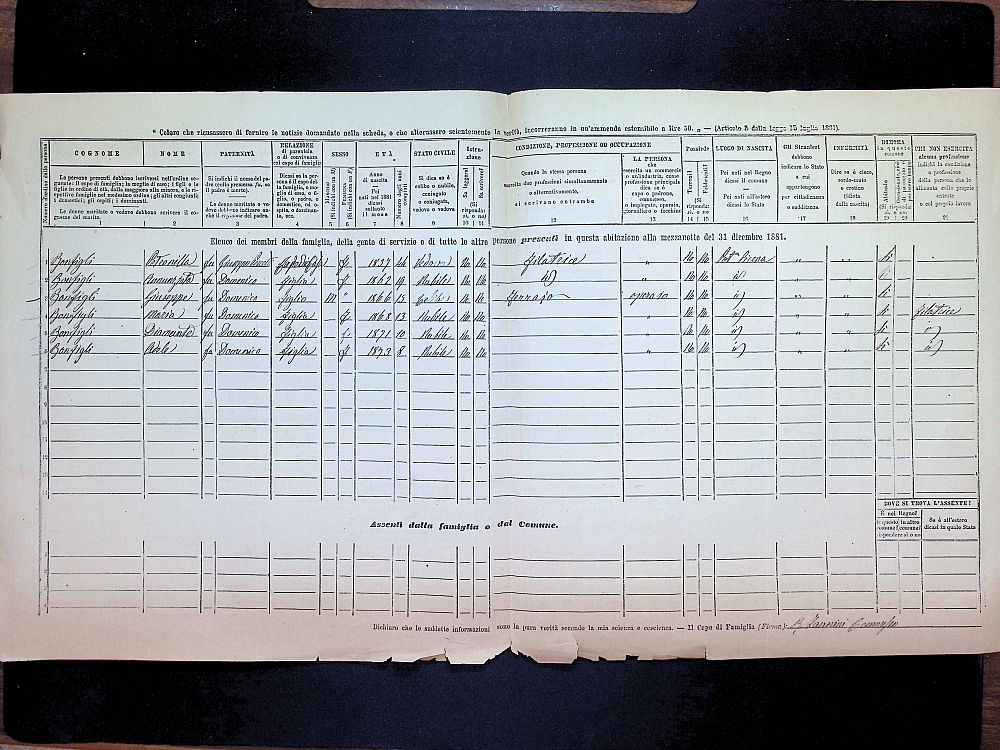 " Coloro che ricusassero di fornire le notizie domandate nella scheda, o che alterassero scientemente la verità, incorreranno in un'ammenda estensibile a lire 50. „ — (Articolo 5 della Legge 15 luglio 1881).
COGNOME NOME PATERNITÀ RELAZIONE di parentela o di convivenza col capo di famiglia SESSO ETÀ STATO CIVILE Istruzione CONDIZIONE, PROFESSIONE OD OCCUPAZIONE Possiede LUOGO DI NASCITA Gli Stranieri INFERMITÀ DIMORA in questo comune CHI NON ESERCITA alcuna professione
Le persone presenti debbono iscriversi nell'ordine seguente: il capo di famiglia; la moglie di esso; i figli e le figlie in ordine di età, dalla maggiore alla minore, e le rispettive famiglie nel medesimo ordine; gli altri congiunti; i domestici; gli ospiti; i dozzinanti.
Le donne maritate o vedove debbono scrivere il cognome del marito.
Si indichi il nome del padre (colla premessa fu, se il padre è morto).
Le donne maritate o vedove debbono indicare anche il cognome del padre.
Maschi (Si indichino con M)
Femmine (Si indichino con F)
Anno di nascita
Pei nati nel 1881 dicasi soltanto il mese
Numero degli anni compiuti
Si dica se è celibe o nubile, coniugato o coniugata, vedovo o vedova
Sa leggere?
Sa scrivere?
(Si risponda: sì, o no)
Quando la stessa persona esercita due professioni simultaneamente o alternativamente, si scrivano entrambe
LA PERSONA che esercita un commercio od un'industria, come professione principale dica se è capo o padrone, commesso, o impiegato, operaio, giornaliero o facchino
Terreni?
Fabbricati?
(Si risponda: sì o no)
Pei nati nel Regno dicasi il comune
Pei nati all'estero dicasi lo Stato
debbono indicare lo Stato a cui appartengono per cittadinanza o sudditanza
Dire se è cieco, sordo-muto o cretino (idiota dalla nascita)
1 2 3 4 5 6 7 8 9 10 11 12 13 14 15 16 17 18 19 20 21
Elenco dei membri della famiglia, della gente di servizio e di tutte le altre persone presenti in questa abitazione alla mezzanotte del 31 dicembre 1881.
1 Bonfigli Petronilla fu Giuseppe f. 1837 44 Vedova No No filatrice „ No No „ „ si
2 Bonfigli Annunziata fu Domenico figlia f. 1862 19 Nubile No No id „ No No id „ „
3 Bonfigli Giuseppe fu Domenico figlio M „ 1866 15 Celibe No No Ferraio operaio No No id „ „ si
4 Bonfigli Maria fu Domenico figlia f. 1868 13 Nubile No No „ No No id „ „ si filatrice
5 Bonfigli fu Domenico figlia f. 1871 10 Nubile No No „ No No id „ „ si id
6 Bonfigli Adele fu Domenico figlia f. 1873 8 Nubile No No „ No No id „ „ si id
DOVE SI TROVA L'ASSENTE?
È nel Regno? Se è all'estero dicasi in quale Stato
in questo comune? in altro comune?
rispondere sì o no
Assenti dalla famiglia o dal Comune.
Dichiaro che le suddette informazioni sono la pura verità secondo la mia scienza e coscienza. — Il Capo di Famiglia (Firma):